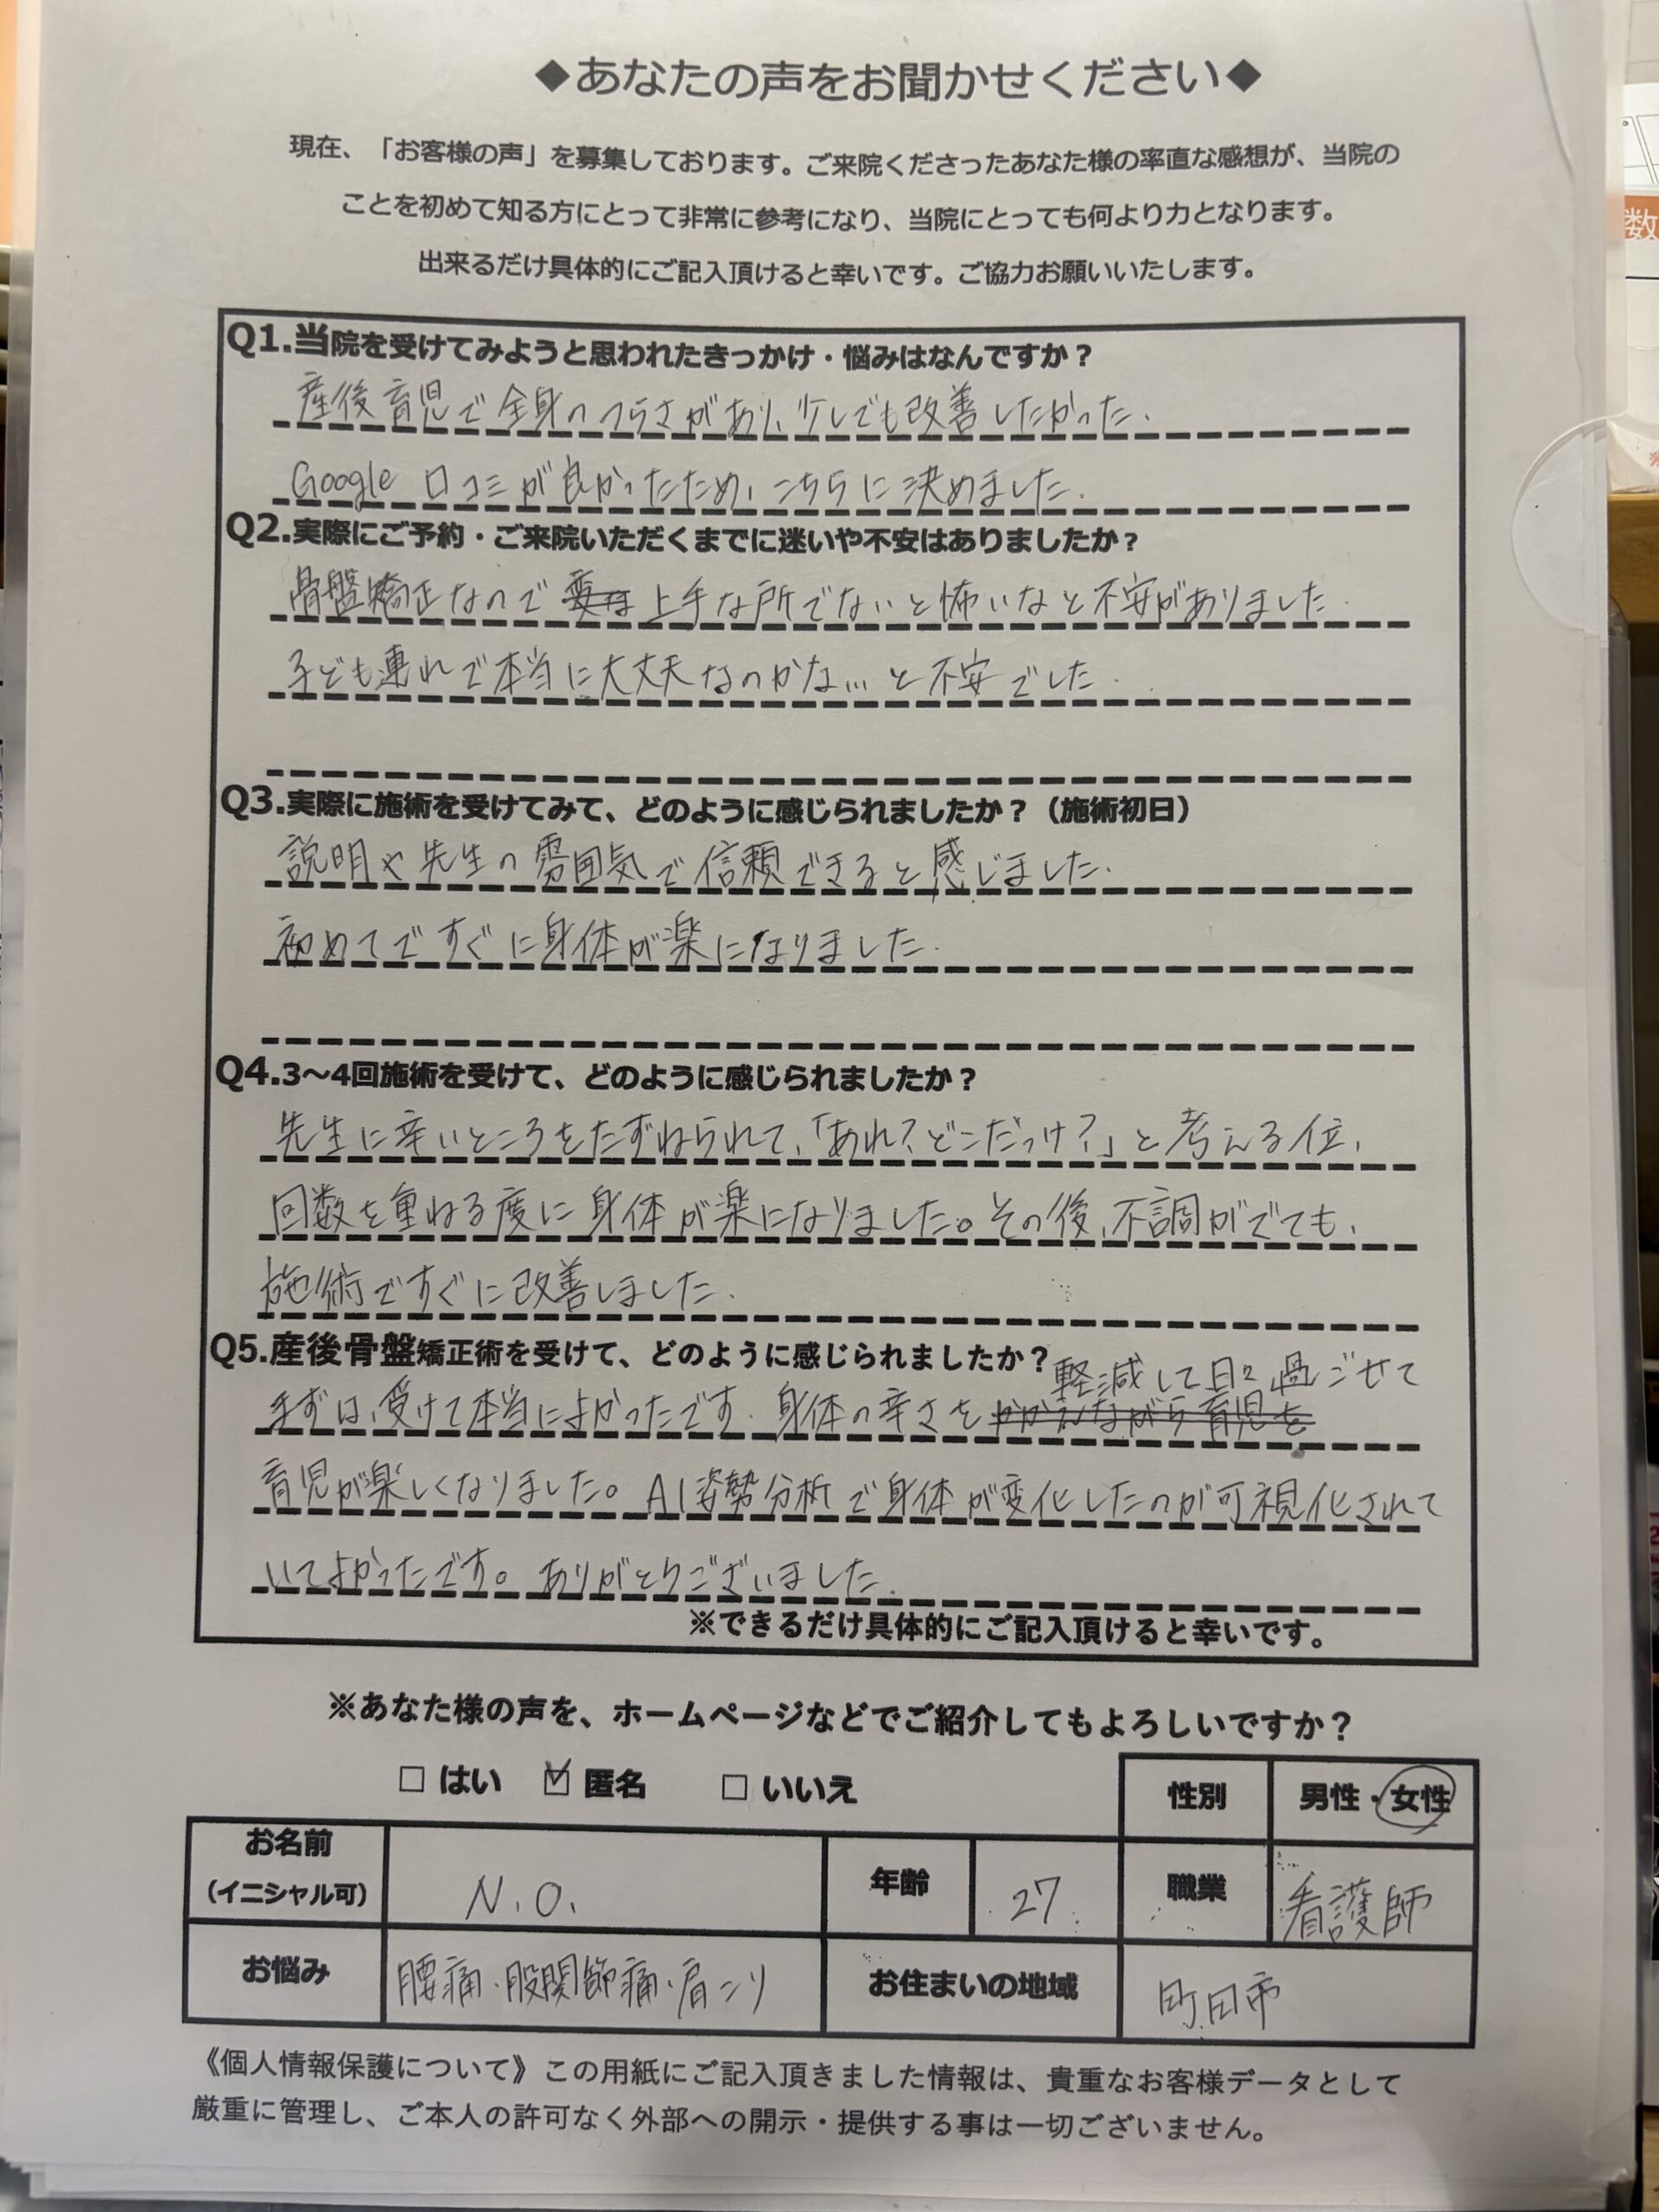 ◆あなたの声をお聞かせください◆
現在、「お客様の声」を募集しております。ご来院くださったあなた様の率直な感想が、当院の
ことを初めて知る方にとって非常に参考になり、当院にとっても何より力となります。
出来るだけ具体的にご記入頂けると幸いです。ご協力お願いいたします。
Q1.当院を受けてみようと思われたきっかけ・悩みはなんですか？
産後育児で全身のつらさがあり、少しでも改善したかった。
Google 口コミが良かったため、こちらに決めました。
Q2.実際にご予約・ご来院いただくまでに迷いや不安はありましたか？
骨盤矯正なので上手な所でないと怖いなと不安がありました。
子ども連れで本当に大丈夫なのかな…と不安でした。
Q3.実際に施術を受けてみて、どのように感じられましたか？（施術初日）
説明や先生の雰囲気で信頼できると感じました。
初めてですぐに身体が楽になりました。
Q4.3～4回施術を受けて、どのように感じられましたか？
先生に辛いところをたずねられて、「あれ？どこだっけ？」と考える位、
回数を重ねる度に身体が楽になりました。その後、不調がでても、
施術ですぐに改善しました。
Q5.産後骨盤矯正術を受けて、どのように感じられましたか？
まずは、受けて本当によかったです。身体の辛さを軽減して日々過ごせて
育児が楽しくなりました。AI姿勢分析で身体が変化したのが可視化されて
いてよかったです。ありがとうございました。
※できるだけ具体的にご記入頂けると幸いです。
※あなた様の声を、ホームページなどでご紹介してもよろしいですか？
□ はい ☑ 匿名 □ いいえ
性別 男性・女性
お名前（イニシャル可） N.O. 年齢 27 職業 看護師
お悩み 腰痛・股関節痛・肩こり お住まいの地域 町田市
《個人情報保護について》この用紙にご記入頂きました情報は、貴重なお客様データとして
厳重に管理し、ご本人の許可なく外部への開示・提供する事は一切ございません。
数